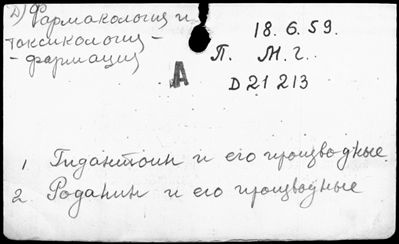 Д) Фармакология и
токсикология -
- фармация
18.6.59.
П. М. г.
А
D21213
1. Гидантоин и его производные.
2 Роданин и его производные